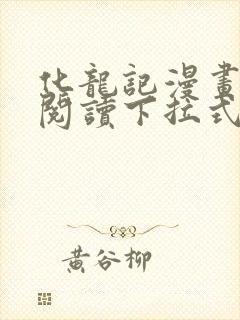 化龍記漫畫
閱讀下拉式
黃谷柳